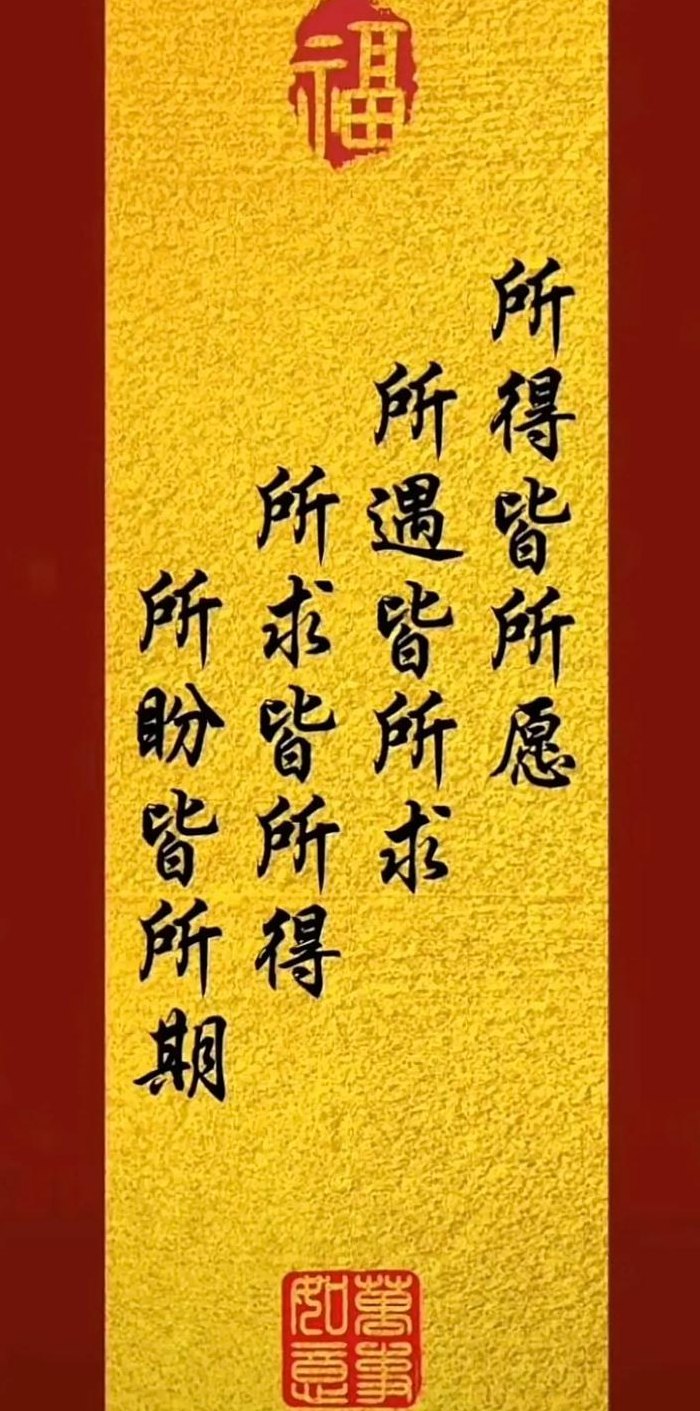 福
所得皆所愿
所遇皆所求
所求皆所得
所盼皆所期
萬事
如意